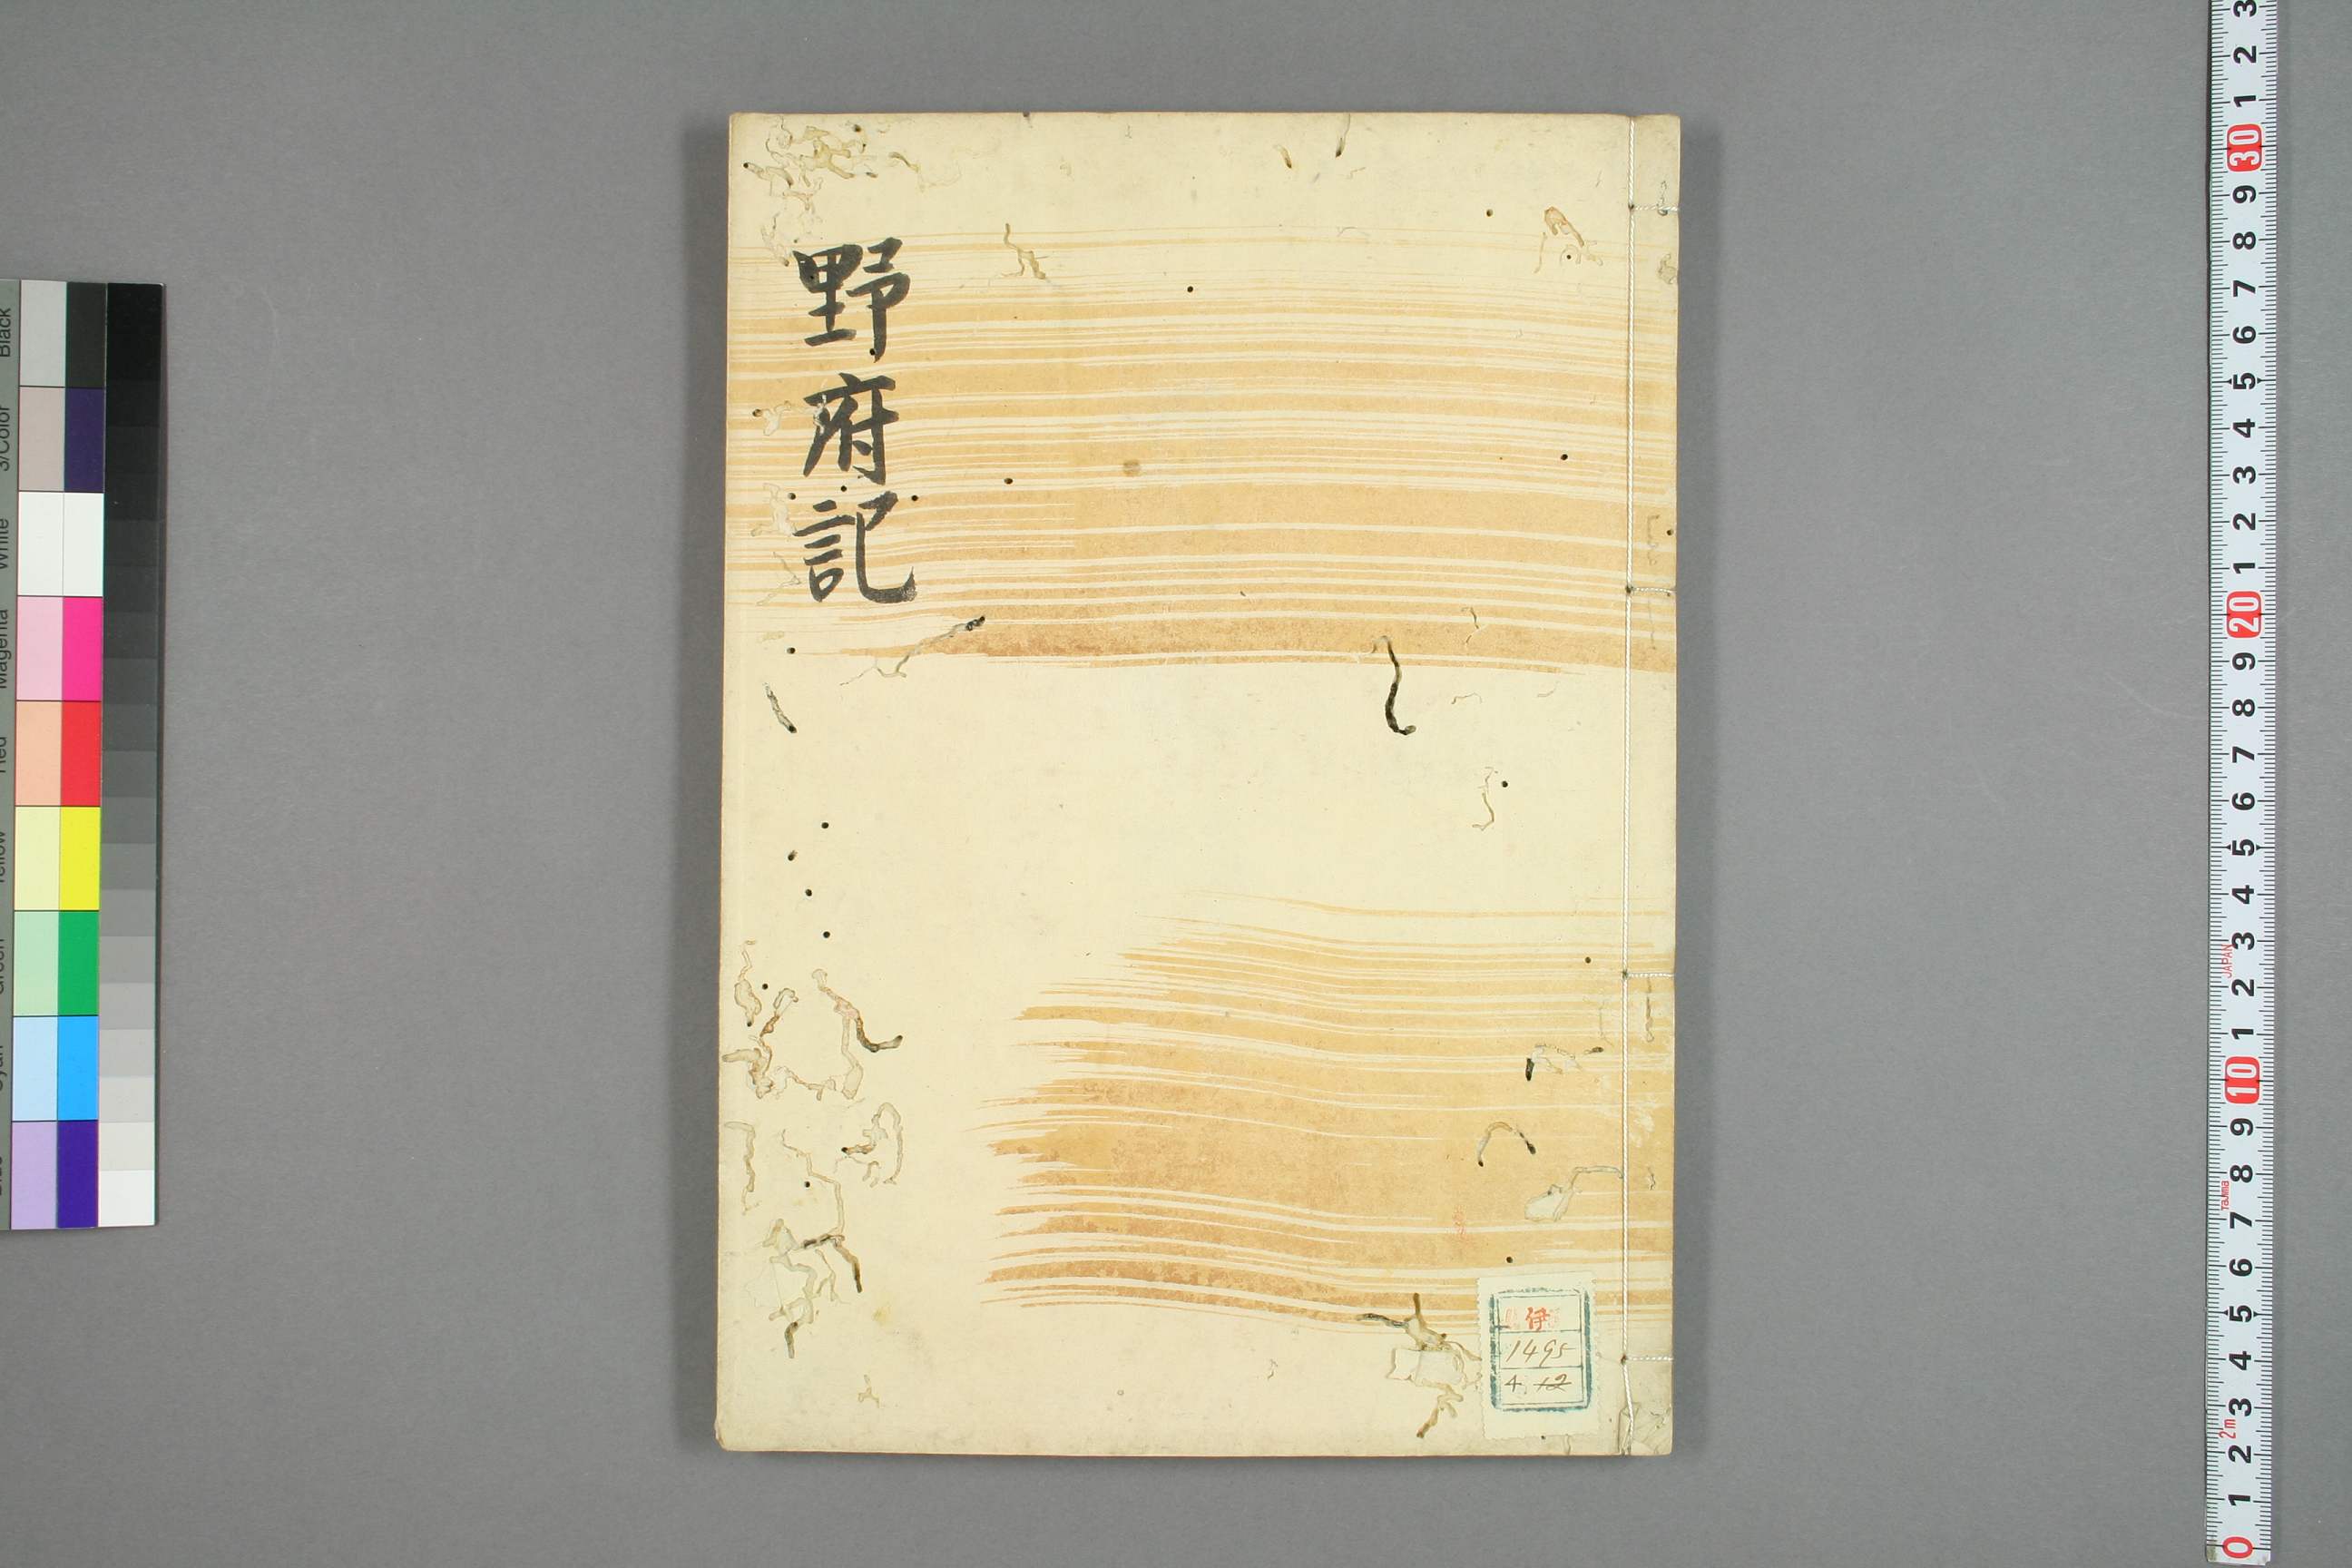 野府記
伊
1495
4. 12
3/Color
Black
White
Magenta
Red
Yellow
Green
Cyan
3
2
1
30
9
8
7
6
5
4
3
2
1
20
9
8
7
6
5
4
3
JAPAN
2
1
10
9
8
Tajima
7
6
5
4
3
2m
2
1
0